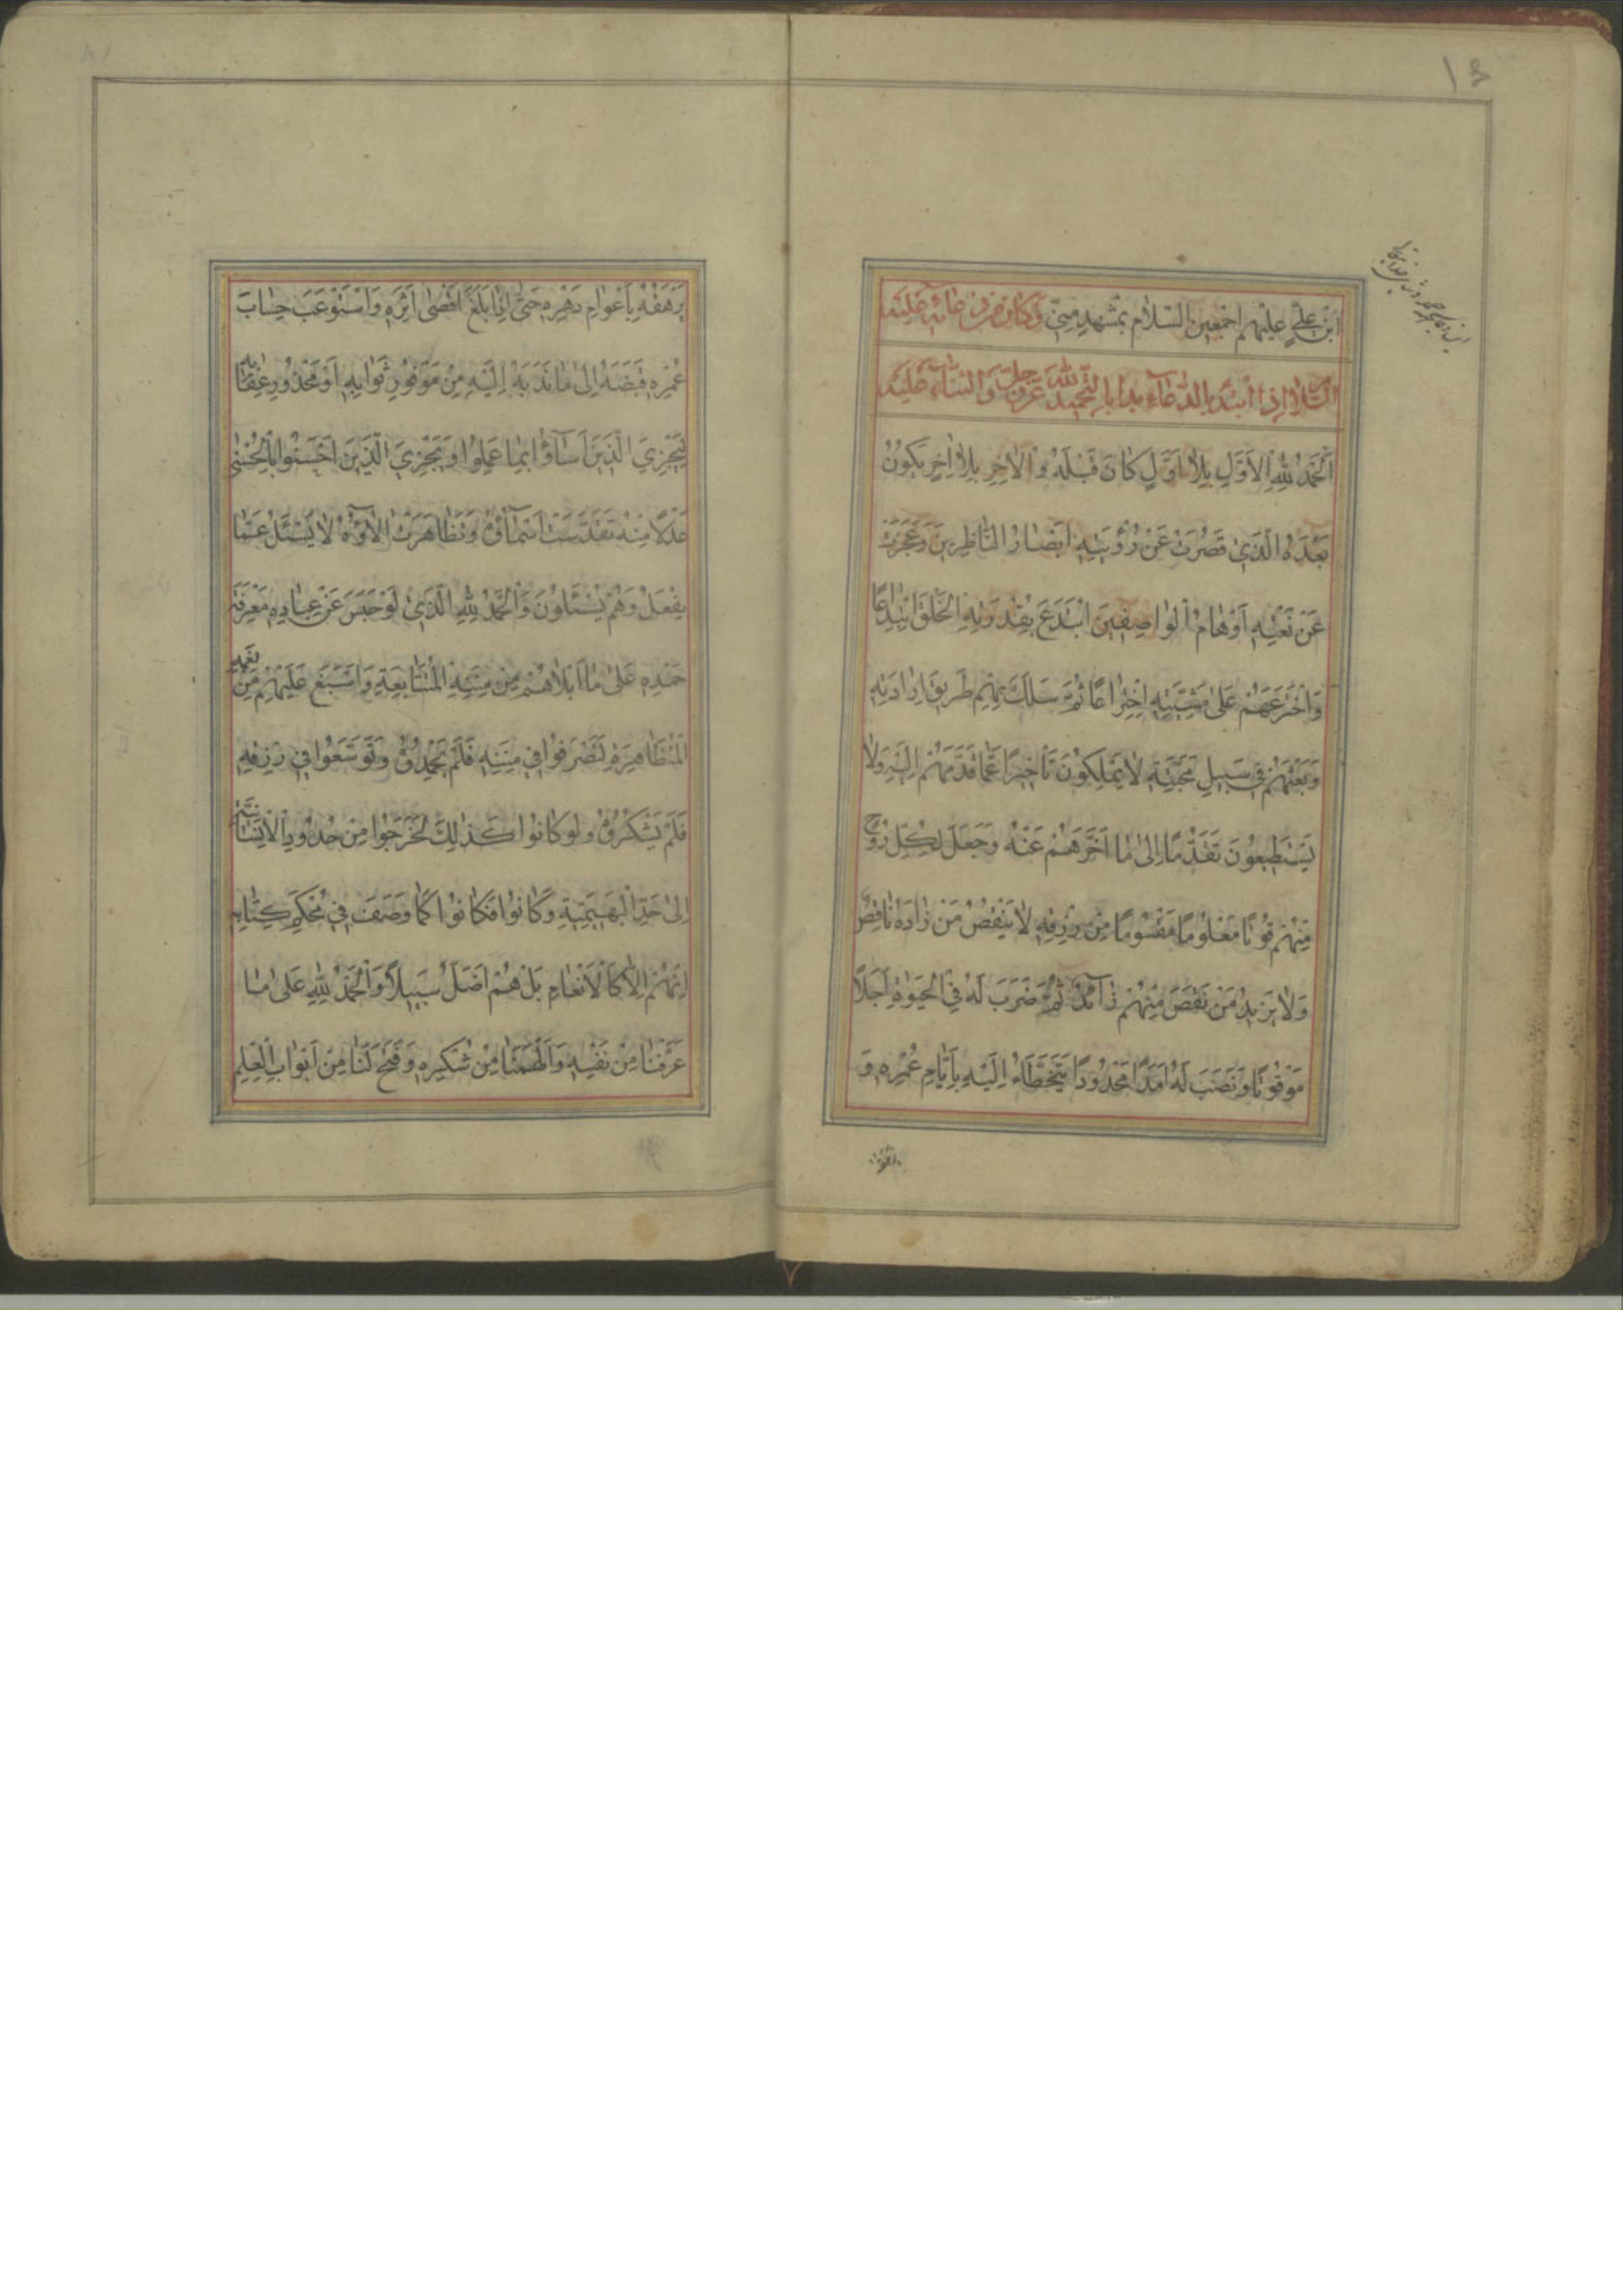 ابْنِ عَلِيٍّ عَلَيْهِمْ اَجْمَعِينَ السَّلَامُ بِمَشْهَدٍ مِنّي وَكَانَ مِنْ دُعَائِهِ عَلَيْهِ
السَّلَامُ اِذَا ابْتَدَءَ بِالدُّعَاءِ بَدَءَ بِالتَّحْمِيدِ لِلّٰهِ عَزَّ وَجَلَّ وَالثَّنَاءِ عَلَيْهِ
اَلْحَمْدُ لِلّٰهِ الْاَوَّلِ بِلَا اَوَّلٍ كَانَ قَبْلَهُ وَالْاٰخِرِ بِلَا اٰخِرٍ يَكُونُ
بَعْدَهُ الَّذِي قَصُرَتْ عَنْ رُؤْيَتِهِ اَبْصَارُ النَّاظِرِينَ وَعَجَزَتْ
عَنْ نَعْتِهِ اَوْهَامُ الْوَاصِفِينَ ابْتَدَعَ بِقُدْرَتِهِ الْخَلْقَ ابْتِدَاعًا
وَاخْتَرَعَهُمْ عَلٰى مَشِيَّتِهِ اخْتِرَاعًا ثُمَّ سَلَكَ بِهِمْ طَرِيقَ اِرَادَتِهِ
وَبَعَثَهُمْ فِي سَبِيلِ مَحَبَّتِهِ لَا يَمْلِكُونَ تَأْخِيرًا عَمَّا قَدَّمَهُمْ اِلَيْهِ وَلَا
يَسْتَطِيعُونَ تَقَدُّمًا اِلٰى مَا اَخَّرَهُمْ عَنْهُ وَجَعَلَ لِكُلِّ رُوحٍ
مِنْهُمْ قُوتًا مَعْلُومًا مَقْسُومًا مِنْ رِزْقِهِ لَا يَنْقُصُ مَنْ زَادَهُ نَاقِصٌ
وَلَا يَزِيدُ مَنْ نَقَصَ مِنْهُمْ زَائِدٌ ثُمَّ ضَرَبَ لَهُ فِي الْحَيٰوةِ اَجَلًا
مَوْقُوتًا وَنَصَبَ لَهُ اَمَدًا مَحْدُودًا يَتَخَطَّاُ اِلَيْهِ بِاَيَّامِ عُمُرِهِ وَ
يَرْهَقُهُ بِاَعْوَامِ دَهْرِهِ حَتّٰى اِذَا بَلَغَ اَقْصٰى اَثَرِهِ وَاسْتَوْعَبَ حِسَابَ
عُمُرِهِ قَبَضَهُ اِلٰى مَا نَدَبَهُ اِلَيْهِ مِنْ مَوْفُورِ ثَوَابِهِ اَوْ مَحْذُورِ عِقَابِهِ
لِيَجْزِيَ الَّذِينَ اَسَاؤُا بِمَا عَمِلُوا وَيَجْزِيَ الَّذِينَ اَحْسَنُوا بِالْحُسْنٰى
عَدْلًا مِنْهُ تَقَدَّسَتْ اَسْمَاؤُهُ وَتَظَاهَرَتْ اٰلَاؤُهُ لَا يُسْئَلُ عَمَّا
يَفْعَلُ وَهُمْ يُسْئَلُونَ وَالْحَمْدُ لِلّٰهِ الَّذِي لَوْ حَبَسَ عَنْ عِبَادِهِ مَعْرِفَةَ
حَمْدِهِ عَلٰى مَا اَبْلَاهُمْ مِنْ مِنَنِهِ الْمُتَتَابِعَةِ وَاَسْبَغَ عَلَيْهِمْ مِنْ نِعَمِهِ
الْمُتَظَاهِرَةِ لَتَصَرَّفُوا فِي مِنَنِهِ فَلَمْ يَحْمَدُوهُ وَتَوَسَّعُوا فِي رِزْقِهِ
فَلَمْ يَشْكُرُوهُ وَلَوْ كَانُوا كَذٰلِكَ لَخَرَجُوا مِنْ حُدُودِ الْاِنْسَانِيَّةِ
اِلٰى حَدِّ الْبَهِيمِيَّةِ وَكَانُوا فَكَانُوا كَمَا وَصَفَ فِي مُحْكَمِ كِتَابِهِ
اِنْهُمْ اِلَّا كَالْاَنْعَامِ بَلْ هُمْ اَضَلُّ سَبِيلًا وَالْحَمْدُ لِلّٰهِ عَلٰى مَا
عَرَّفَنَا مِنْ نَفْسِهِ وَاَلْهَمَنَا مِنْ شُكْرِهِ وَفَتَحَ لَنَا مِنْ اَبْوَابِ الْعِلْمِ